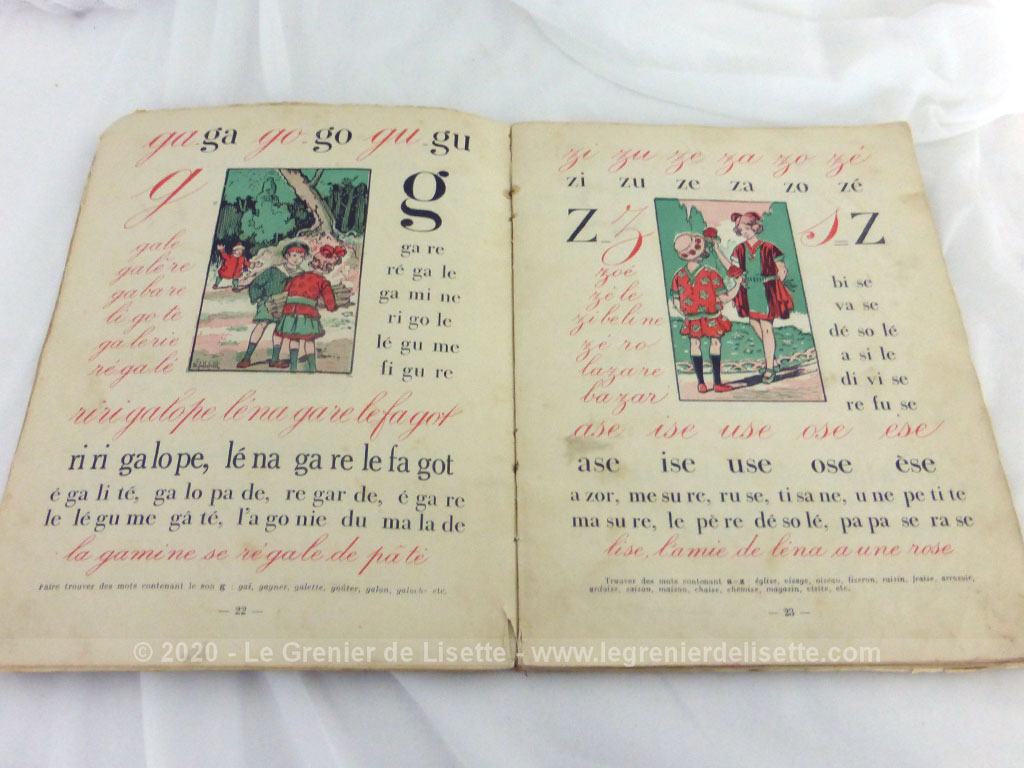 ga-ga go-go gu-gu
g g
gale
galère
gabare
ligote
galerie
régalé
ga re
ré ga le
ga mi ne
ri go le
lé gu me
fi gu re
riri galope léna gare le fagot
ri ri ga lo pe, lé na ga re le fa got
é ga li té, ga lo pa de, re gar de, é ga re
le lé gu me gâ té, l'a go nie du ma la de
la gamine se régale de pâté
Faire trouver des mots contenant le son g : gai, gagner, galette, goûter, galon, galoche etc.
— 22 —
zi zu ze za zo zé
zi zu ze za zo zé
Z-Z s=Z
zoé
zèle
zibeline
zéro
lazare
bazar
bi se
va se
dé so lé
a si le
di vi se
re fu se
ase ise use ose èse
ase ise use ose èse
a zor, me su re, ru se, ti sa ne, u ne pe ti te
ma su re, le pè re dé so lé, pa pa se ra se
lise, l'amie de léna a une rose
Trouver des mots contenant s=z église, visage, oiseau, raisin, fraise, arrosoir,
ardoise, saison, maison, chaise, chemise, magasin, visite, etc.
— 23 —
© 2020 - Le Grenier de Lisette - www.legrenierdelisette.com